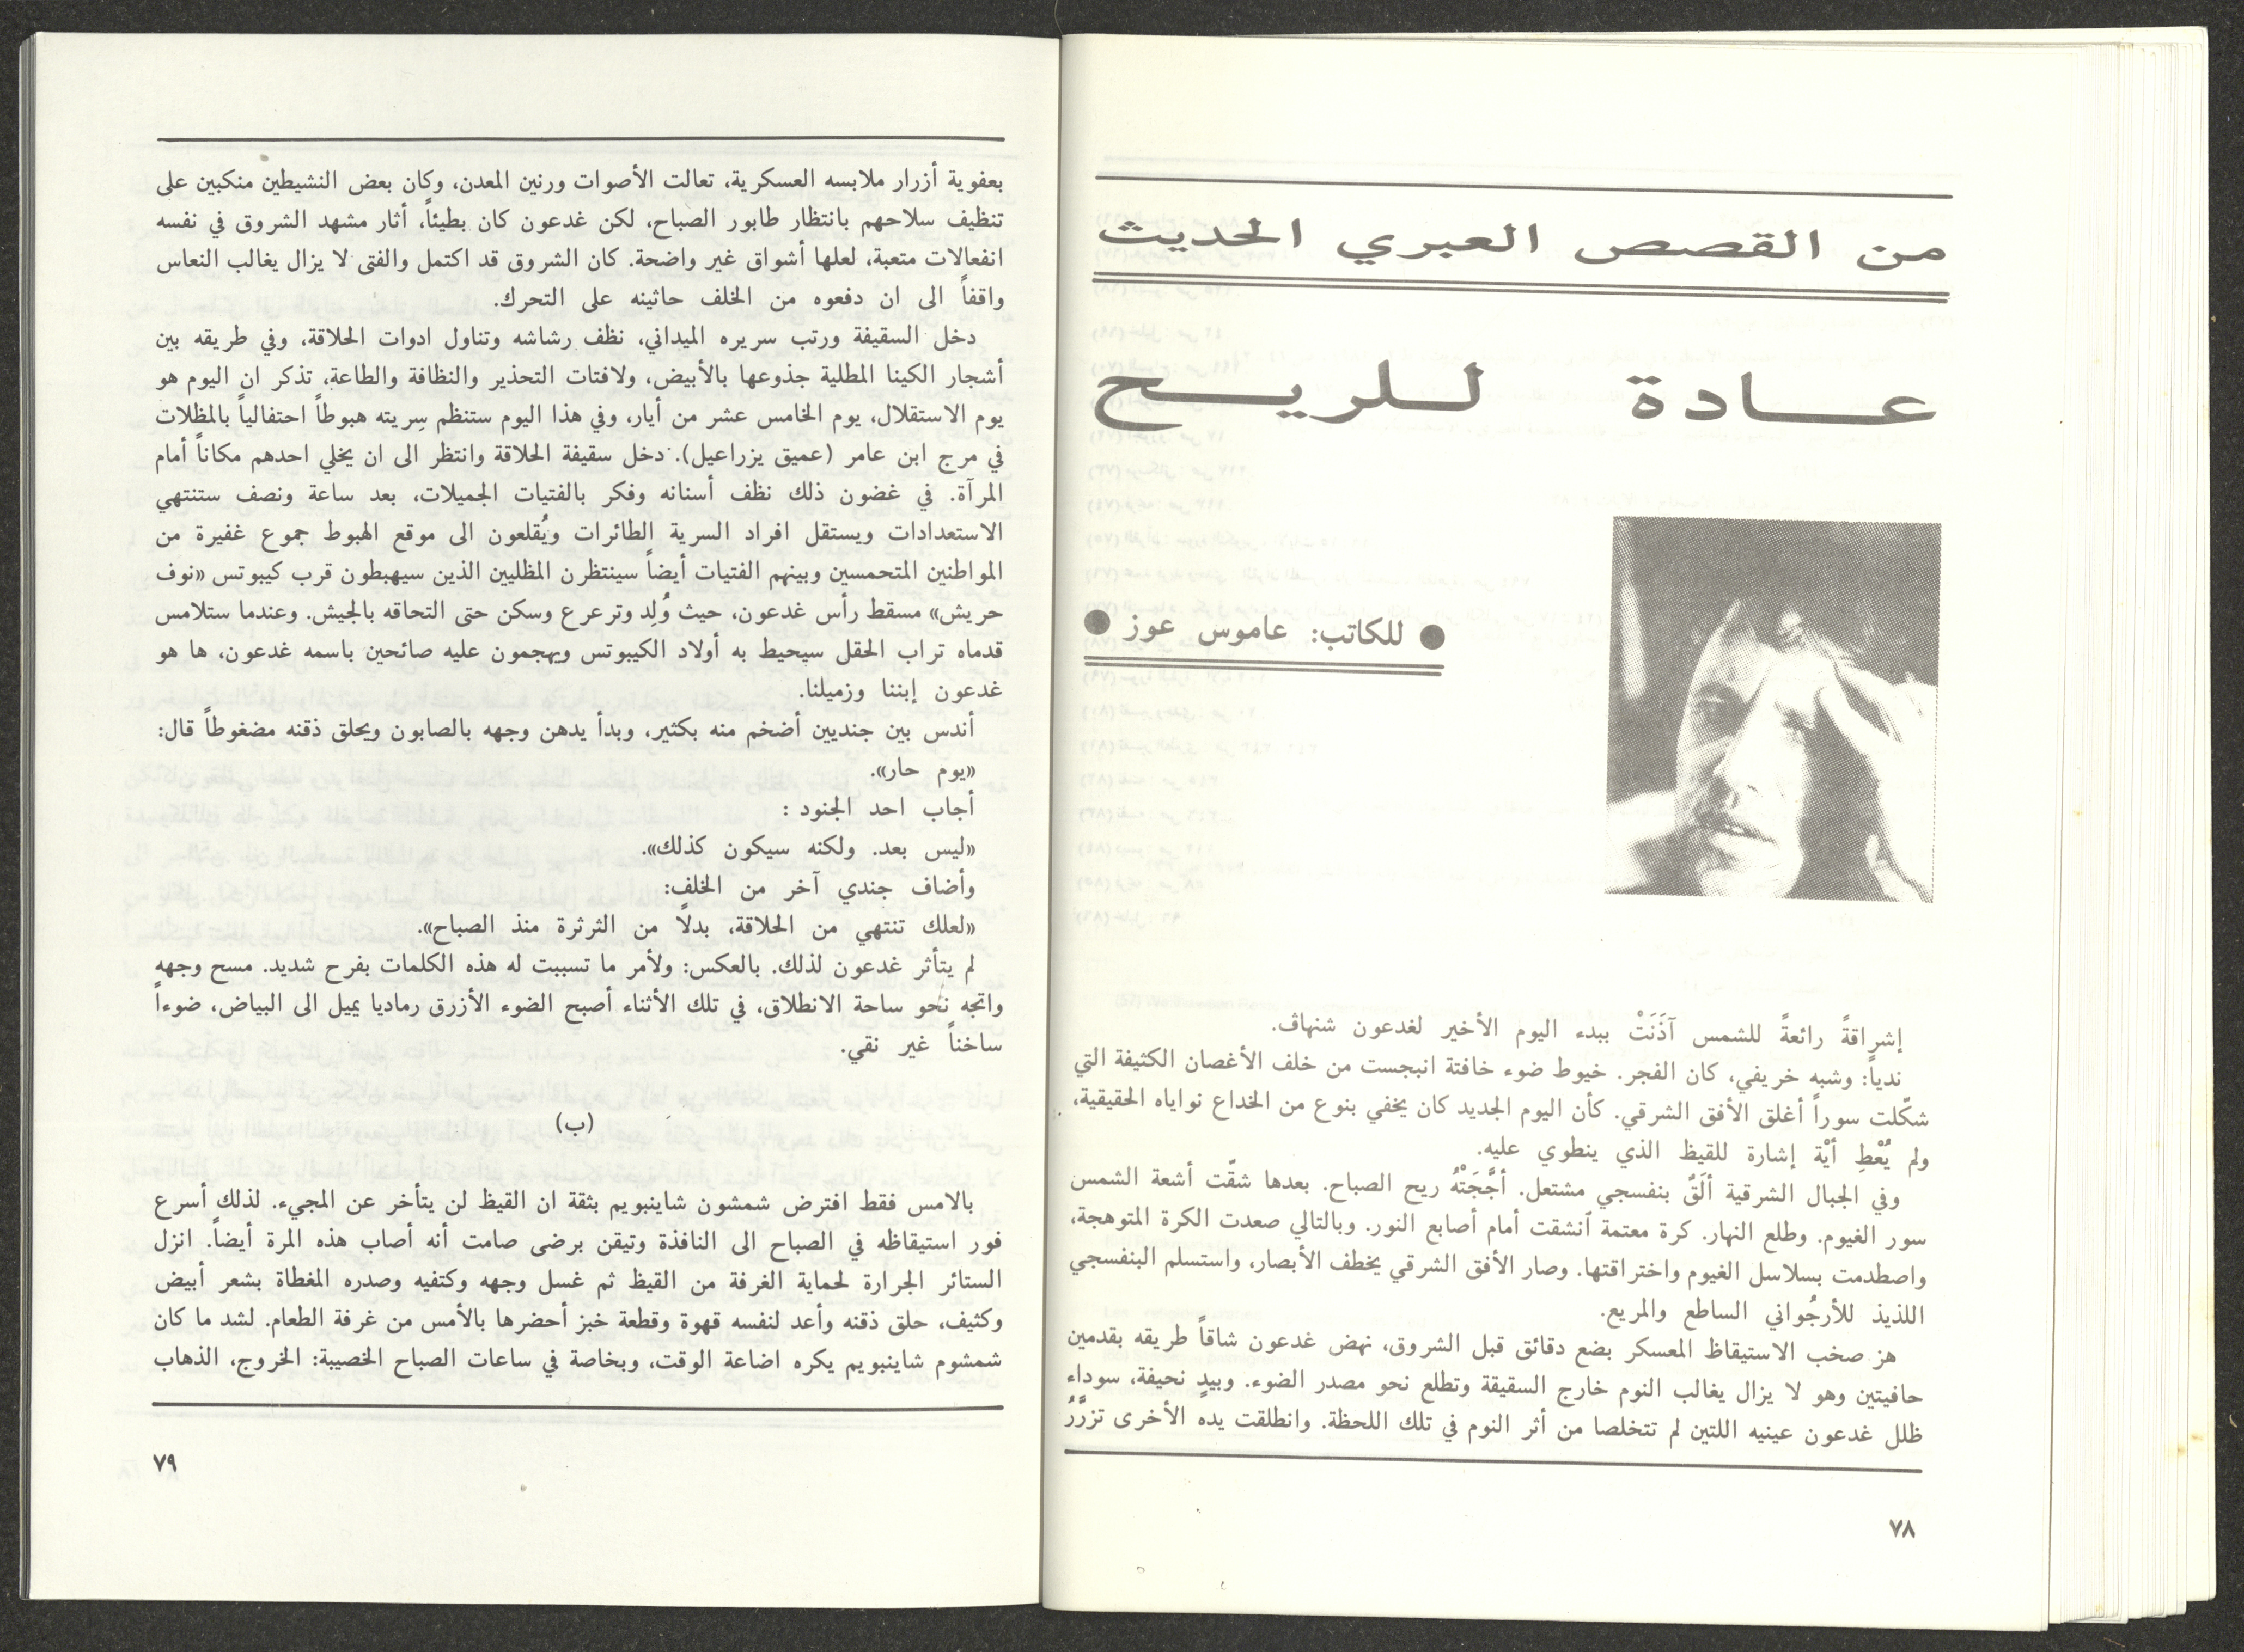 من القصص العبري الحديث
عادة للريح
● للكاتب: عاموس عوز ●
إشراقةً رائعةً للشمس آذَنَتْ ببدء اليوم الأخير لغدعون شنهاف.
ندياً: وشبه خريفي، كان الفجر. خيوط ضوء خافتة انبجست من خلف الأغصان الكثيفة التي
شكّلت سوراً أغلق الأفق الشرقي. كأن اليوم الجديد كان يخفي بنوع من الخداع نواياه الحقيقية،
ولم يُعْطِ أيْة إشارة للقيظ الذي ينطوي عليه.
وفي الجبال الشرقية ألَقٌ بنفسجي مشتعل. أجَّجَتْهُ ريح الصباح. بعدها شقّت أشعة الشمس
سور الغيوم. وطلع النهار. كرة معتمة ٱنشقت أمام أصابع النور. وبالتالي صعدت الكرة المتوهجة،
واصطدمت بسلاسل الغيوم واختراقتها. وصار الأفق الشرقي يخطف الأبصار، واستسلم البنفسجي
اللذيذ للأرجُواني الساطع والمريع.
هز صخب الاستيقاظ المعسكر بضع دقائق قبل الشروق، نهض غدعون شاقاً طريقه بقدمين
حافيتين وهو لا يزال يغالب النوم خارج السقيقة وتطلع نحو مصدر الضوء. وبيدٍ نحيفة، سوداء
ظلل غدعون عينيه اللتين لم تتخلصا من أثر النوم في تلك اللحظة. وانطلقت يده الأخرى تزرَّرُ
٧٨
بعفوية أزرار ملابسه العسكرية، تعالت الأصوات ورنين المعدن، وكان بعض النشيطين منكبين على
تنظيف سلاحهم بانتظار طابور الصباح، لكن غدعون كان بطيئاً، أثار مشهد الشروق في نفسه
انفعالات متعبة، لعلها أشواق غير واضحة. كان الشروق قد اكتمل والفتى لا يزال يغالب النعاس
واقفاً الى ان دفعوه من الخلف حاثينه على التحرك.
دخل السقيفة ورتب سريره الميداني، نظف رشاشه وتناول ادوات الحلاقة، وفي طريقه بين
أشجار الكينا المطلية جذوعها بالأبيض، ولافتات التحذير والنظافة والطاعة، تذكر ان اليوم هو
يوم الاستقلال، يوم الخامس عشر من أيار، وفي هذا اليوم ستنظم سِريته هبوطاً احتفالياً بالمظلات
في مرج ابن عامر (عميق يزراعيل). دخل سقيفة الحلاقة وانتظر الى ان يخلي احدهم مكاناً أمام
المرآة. في غضون ذلك نظف أسنانه وفكر بالفتيات الجميلات، بعد ساعة ونصف ستنتهي
الاستعدادات ويستقل افراد السرية الطائرات ويُقلعون الى موقع الهبوط جموع غفيرة من
المواطنين المتحمسين وبينهم الفتيات أيضاً سينتظرن المظليين الذين سيهبطون قرب كيبوتس «نوف
حريش» مسقط رأس غدعون، حيث وُلِد وترعرع وسكن حتى التحاقه بالجيش. وعندما ستلامس
قدماه تراب الحقل سيحيط به أولاد الكيبوتس ويهجمون عليه صائحين باسمه غدعون، ها هو
غدعون إبننا وزميلنا.
أندس بين جنديين أضخم منه بكثير، وبدأ يدهن وجهه بالصابون ويحلق ذقنه مضغوطاً قال:
«يوم حار».
أجاب احد الجنود :
«ليس بعد. ولكنه سيكون كذلك».
وأضاف جندي آخر من الخلف:
«لعلك تنتهي من الحلاقة، بدلًا من الثرثرة منذ الصباح».
لم يتأثر غدعون لذلك. بالعكس: ولأمر ما تسببت له هذه الكلمات بفرح شديد. مسح وجهه
واتجه نحو ساحة الانطلاق، في تلك الأثناء أصبح الضوء الأزرق رماديا يميل الى البياض، ضوءاً
ساخناً غير نقي.
(ب)
بالامس فقط افترض شمشون شاينبويم بثقة ان القيظ لن يتأخر عن المجيء. لذلك أسرع
فور استيقاظه في الصباح الى النافذة وتيقن برضى صامت أنه أصاب هذه المرة أيضاً. انزل
الستائر الجرارة لحماية الغرفة من القيظ ثم غسل وجهه وكتفيه وصدره المغطاة بشعر أبيض
وكثيف، حلق ذقنه وأعد لنفسه قهوة وقطعة خبز أحضرها بالأمس من غرفة الطعام. لشد ما كان
شمشوم شاينبويم يكره اضاعة الوقت، وبخاصة في ساعات الصباح الخصيبة: الخروج، الذهاب
٧٩